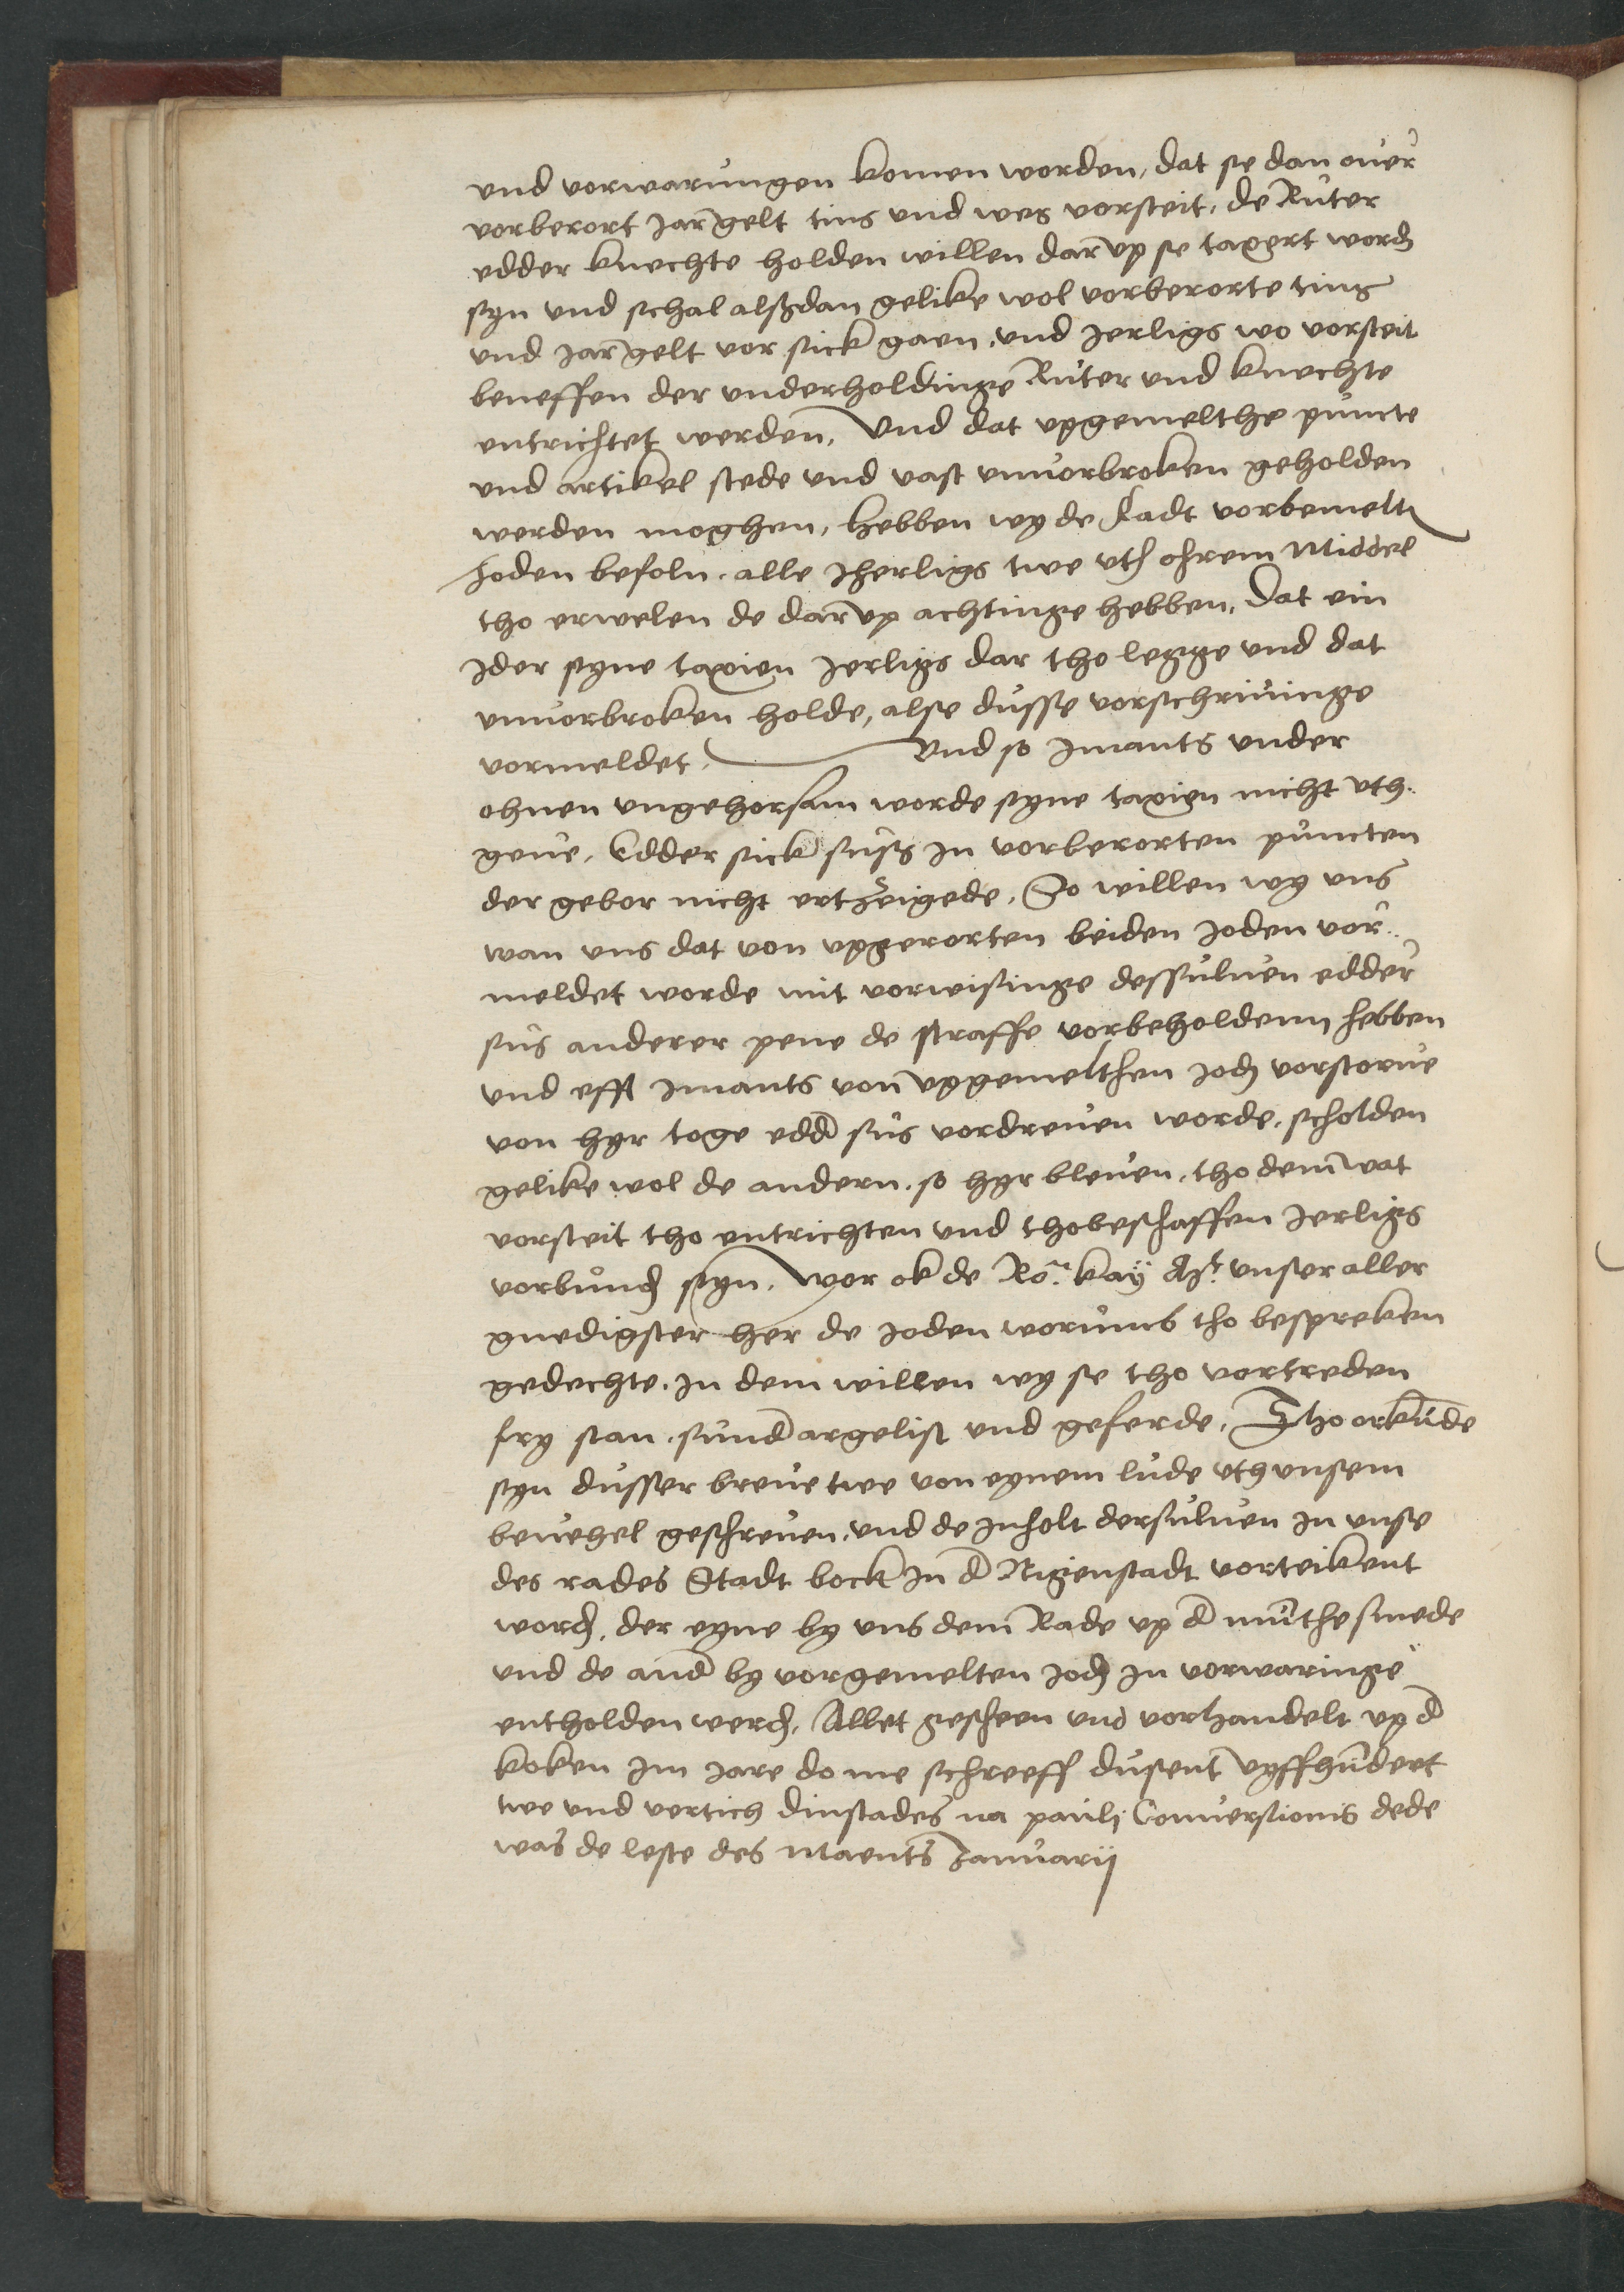 und vorwarungen komen worden, dat se dan ouer
vorberort jar gelt tins und wes vorsteit, de Ruter
edder knechte holden willen dar up se taxert word
syn und schal alsßdan gelike wol vorberorte tins
und jar gelt vor sick gaen, und jerligs wo vorsteit
beneffen der underholdinge Ruter und knechte
entrichtet werden, Und dat upgemelthe puncte
und artikel stede und vast unvorbroken geholden
werden moghen, hebben wy de Radt vorbemelt
Joden befoln, alle jherligs twe uth ohrem Middel
tho erwelen de dar up achtinge hebben, Dat ein
jder syne taxien jerligs dar tho legge und dat
unuorbroken holde, alse dusse vorschriuinge
vormeldet, Und so jmants under
ohnen ungehorsam worde syne taxien nicht uth..
geue, Edder sick susß in vorberorten puncten
der gebor nicht ertzeigede, So willen wy uns
wan uns dat von upgerorten beiden Joden vor..
meldet worde mit vorwisinge dessuluen edder
sus anderer pene de straffe vorbeholdenn hebben
und efft jmants von upgemelthen Jod vorstorue
von hyr toge edd sus vordreuen worde, scholden
gelike wol de andern, so hyr bleuen, tho dem wat
vorsteit tho entrichten und thobeschaffen jerligs
vorbund syn, Wor ok de Ro. kay Mt. unser aller
gnedigster her de Joden worumb tho bespreken
gedechte, In dem willen wy se tho vortreden
fry stan, sund argelist und geferde, Tho orkunde
syn dusser breue twe von eynem lude uth unsem
beuehel geschreuen, und de inholt dersuluen in unse
des rades Stadt bock in d Nigenstadt vorteikent
word, der eyne by uns dem Rade up d munthe smede
und de and by vorgemelten Jod in vorwaringe
entholden werd, Allet gescheen und vorhandelt up d
koken im jare do me schreeff dusent vyffhundert
twe und vertich dinstades na pauli Conuersionis dede
was de leste des Maents Januarij